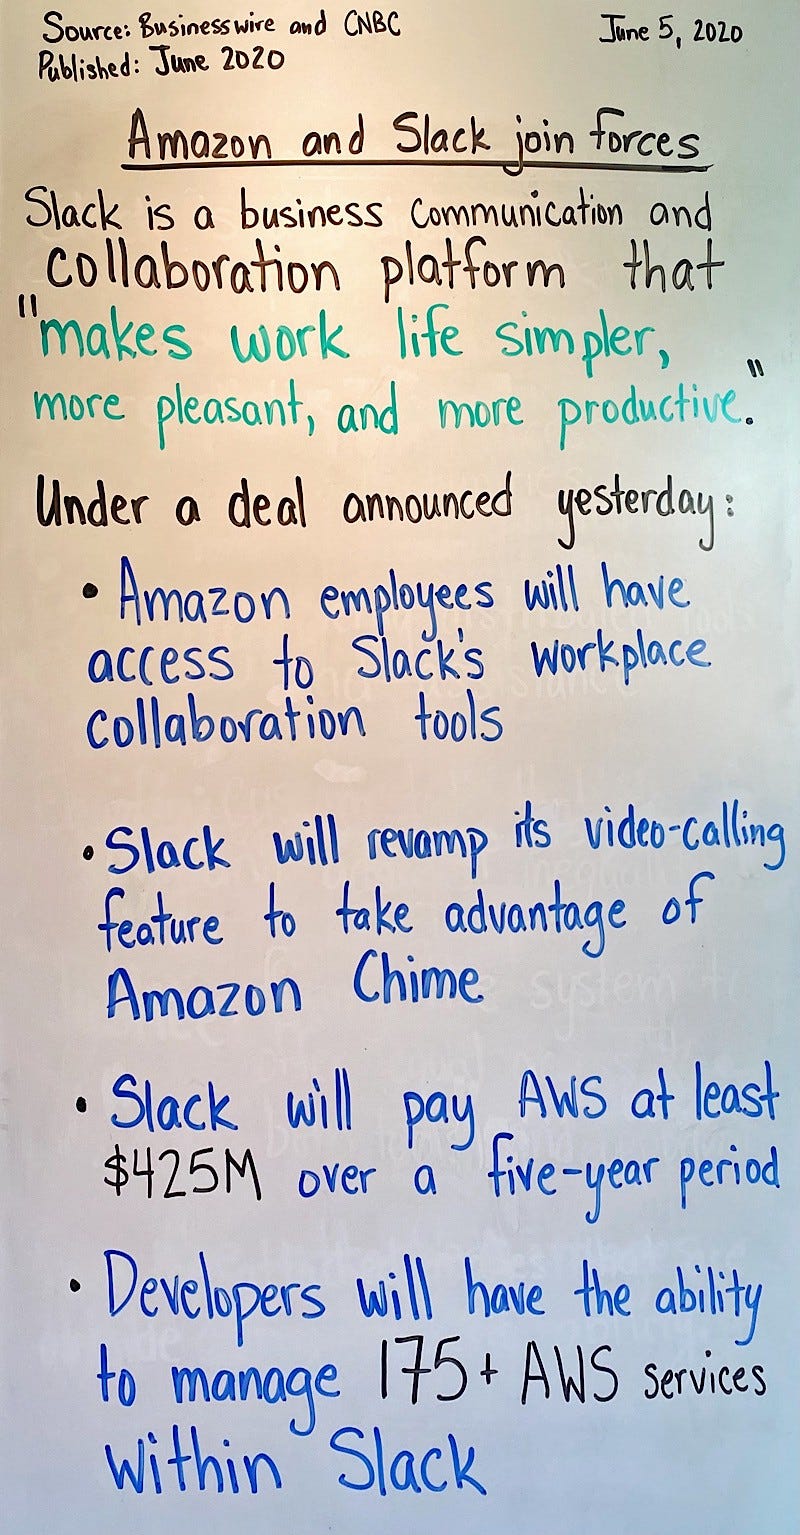 Source: Businesswire and CNBC
June 5, 2020
Published: June 2020
Amazon and Slack join forces
Slack is a business communication and
collaboration platform that
"makes work life simpler,
more pleasant, and more productive."
Under a deal announced yesterday:
• Amazon employees will have
access to Slack's workplace
collaboration tools
• Slack will revamp its video-calling
feature to take advantage of
Amazon Chime
• Slack will pay AWS at least
$425M over a five-year period
• Developers will have the ability
to manage 175+ AWS services
within Slack